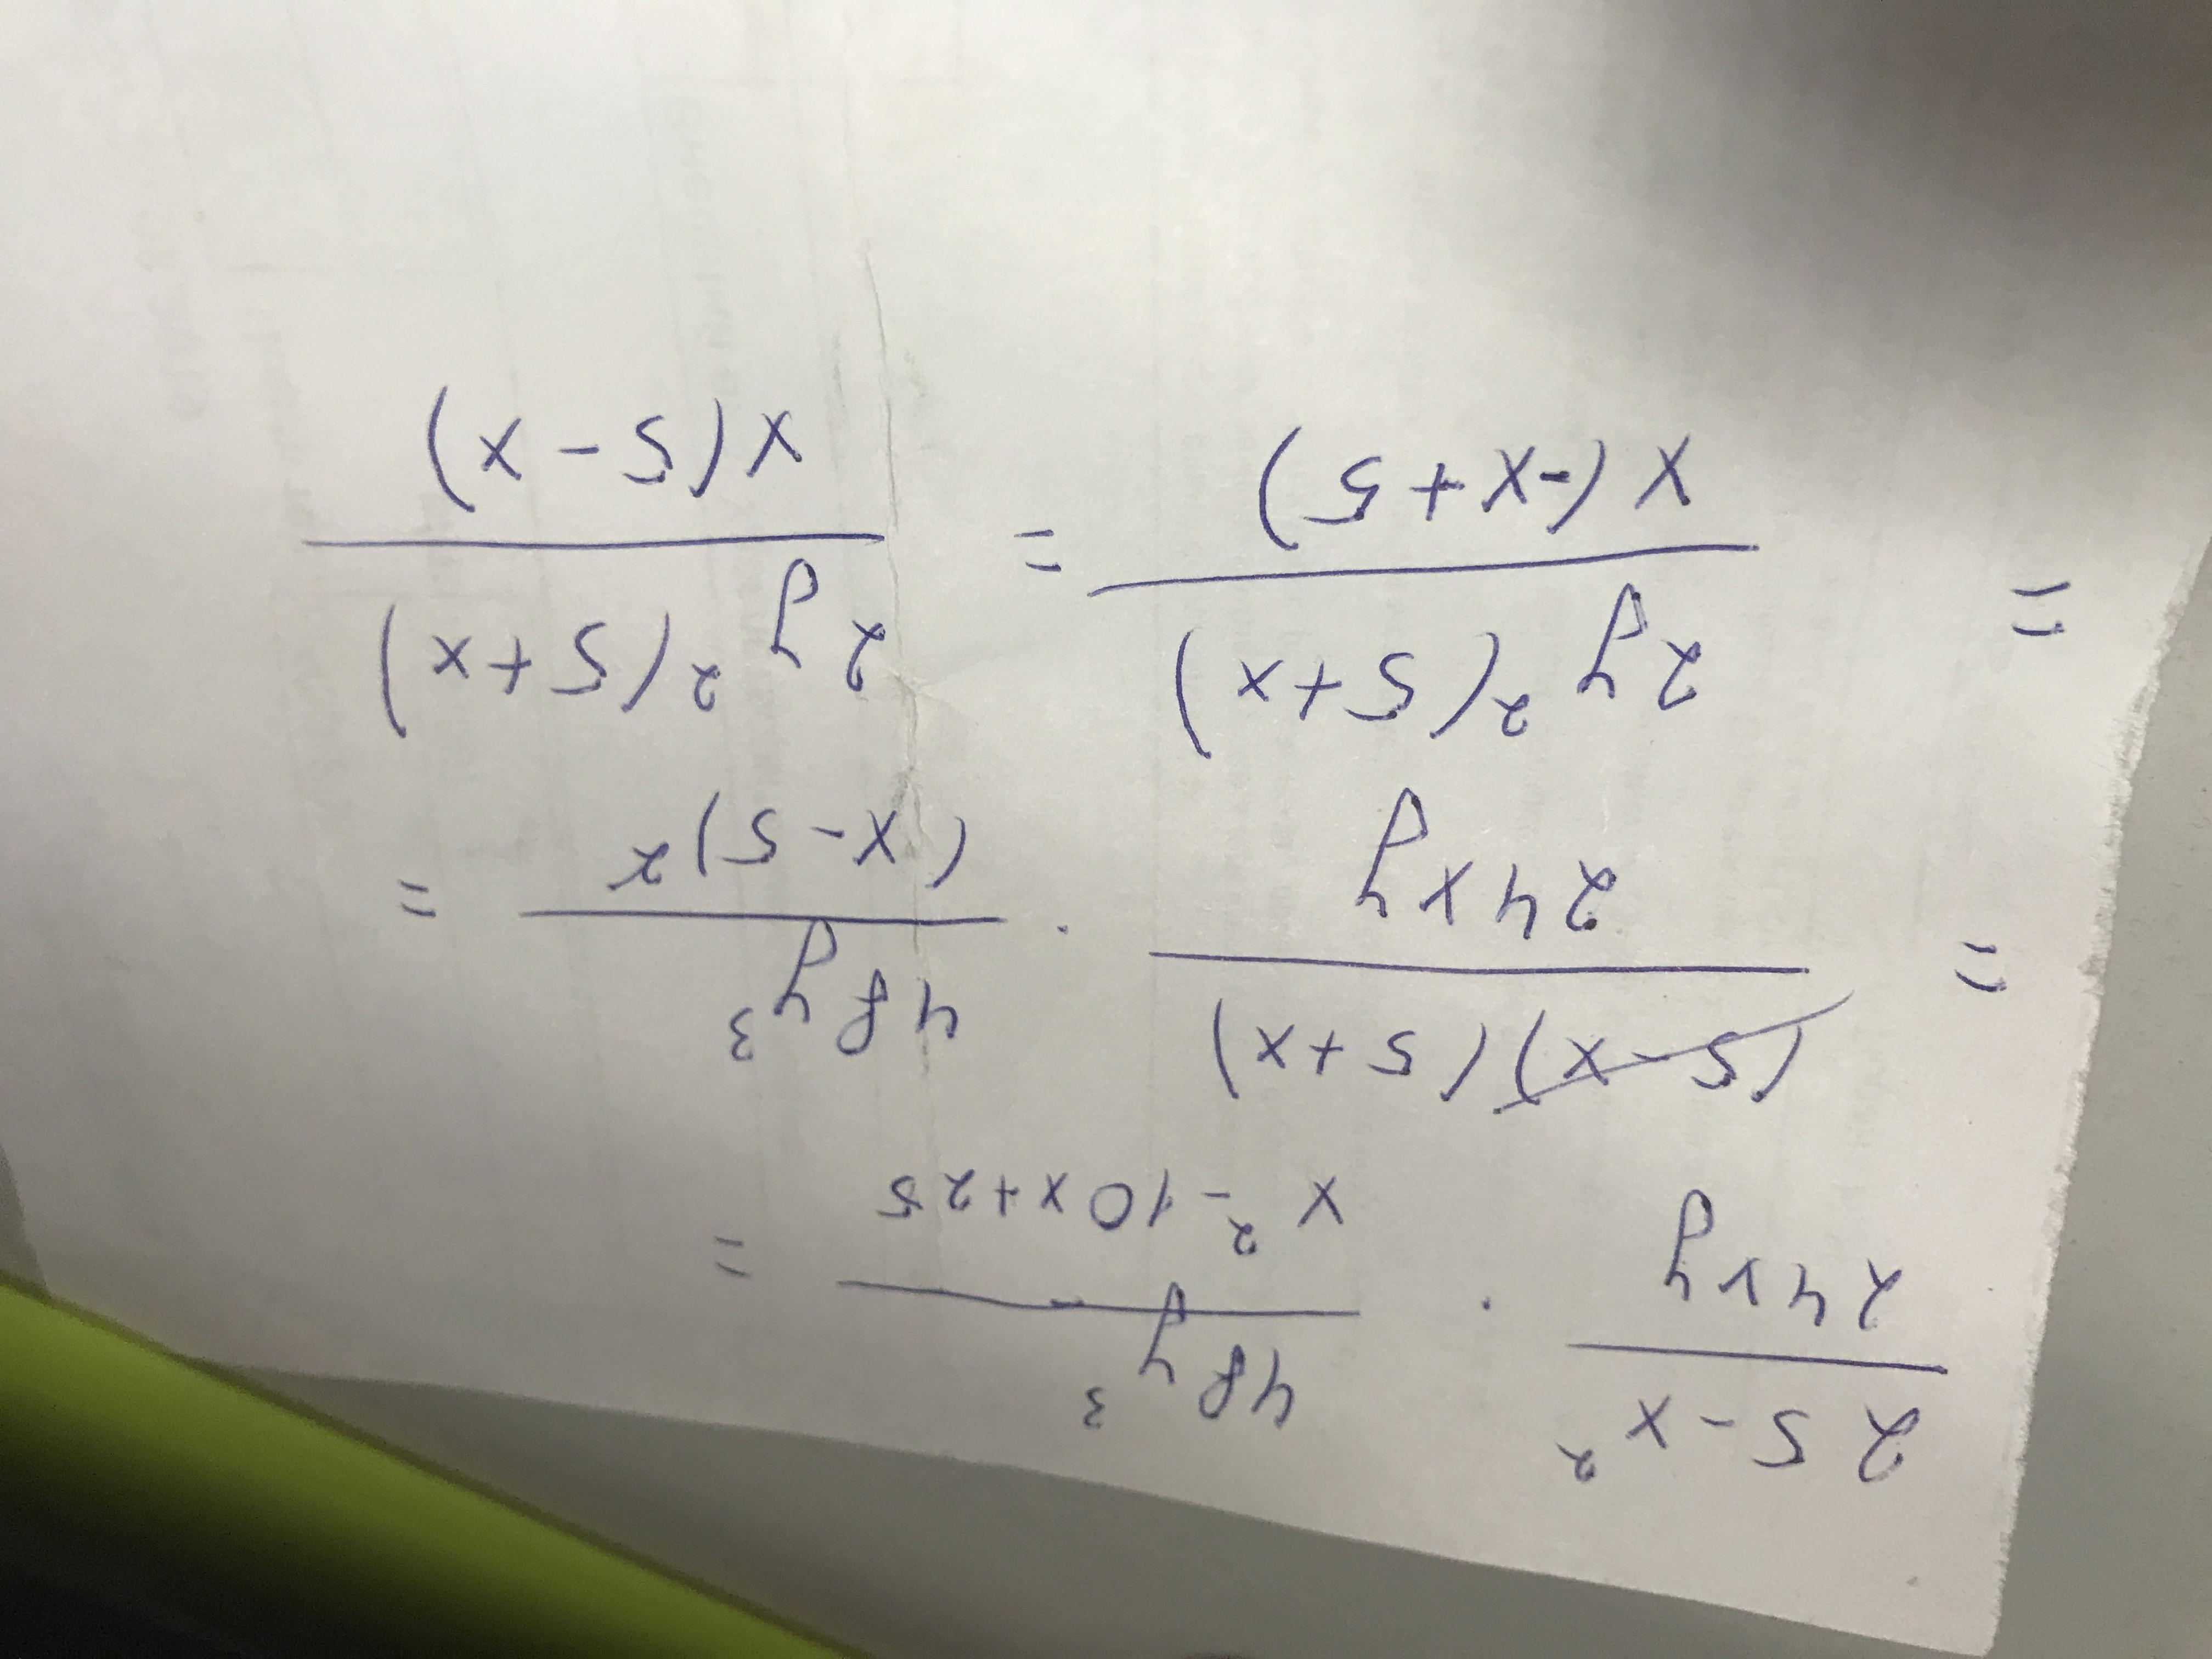 25-x²/24xy · 48y³/x²-10x+25 =
= (5-x)(5+x)/24xy · 48y³/(x-5)² =
= 2y²(5+x)/x(-x+5) = 2y²(5+x)/x(5-x)